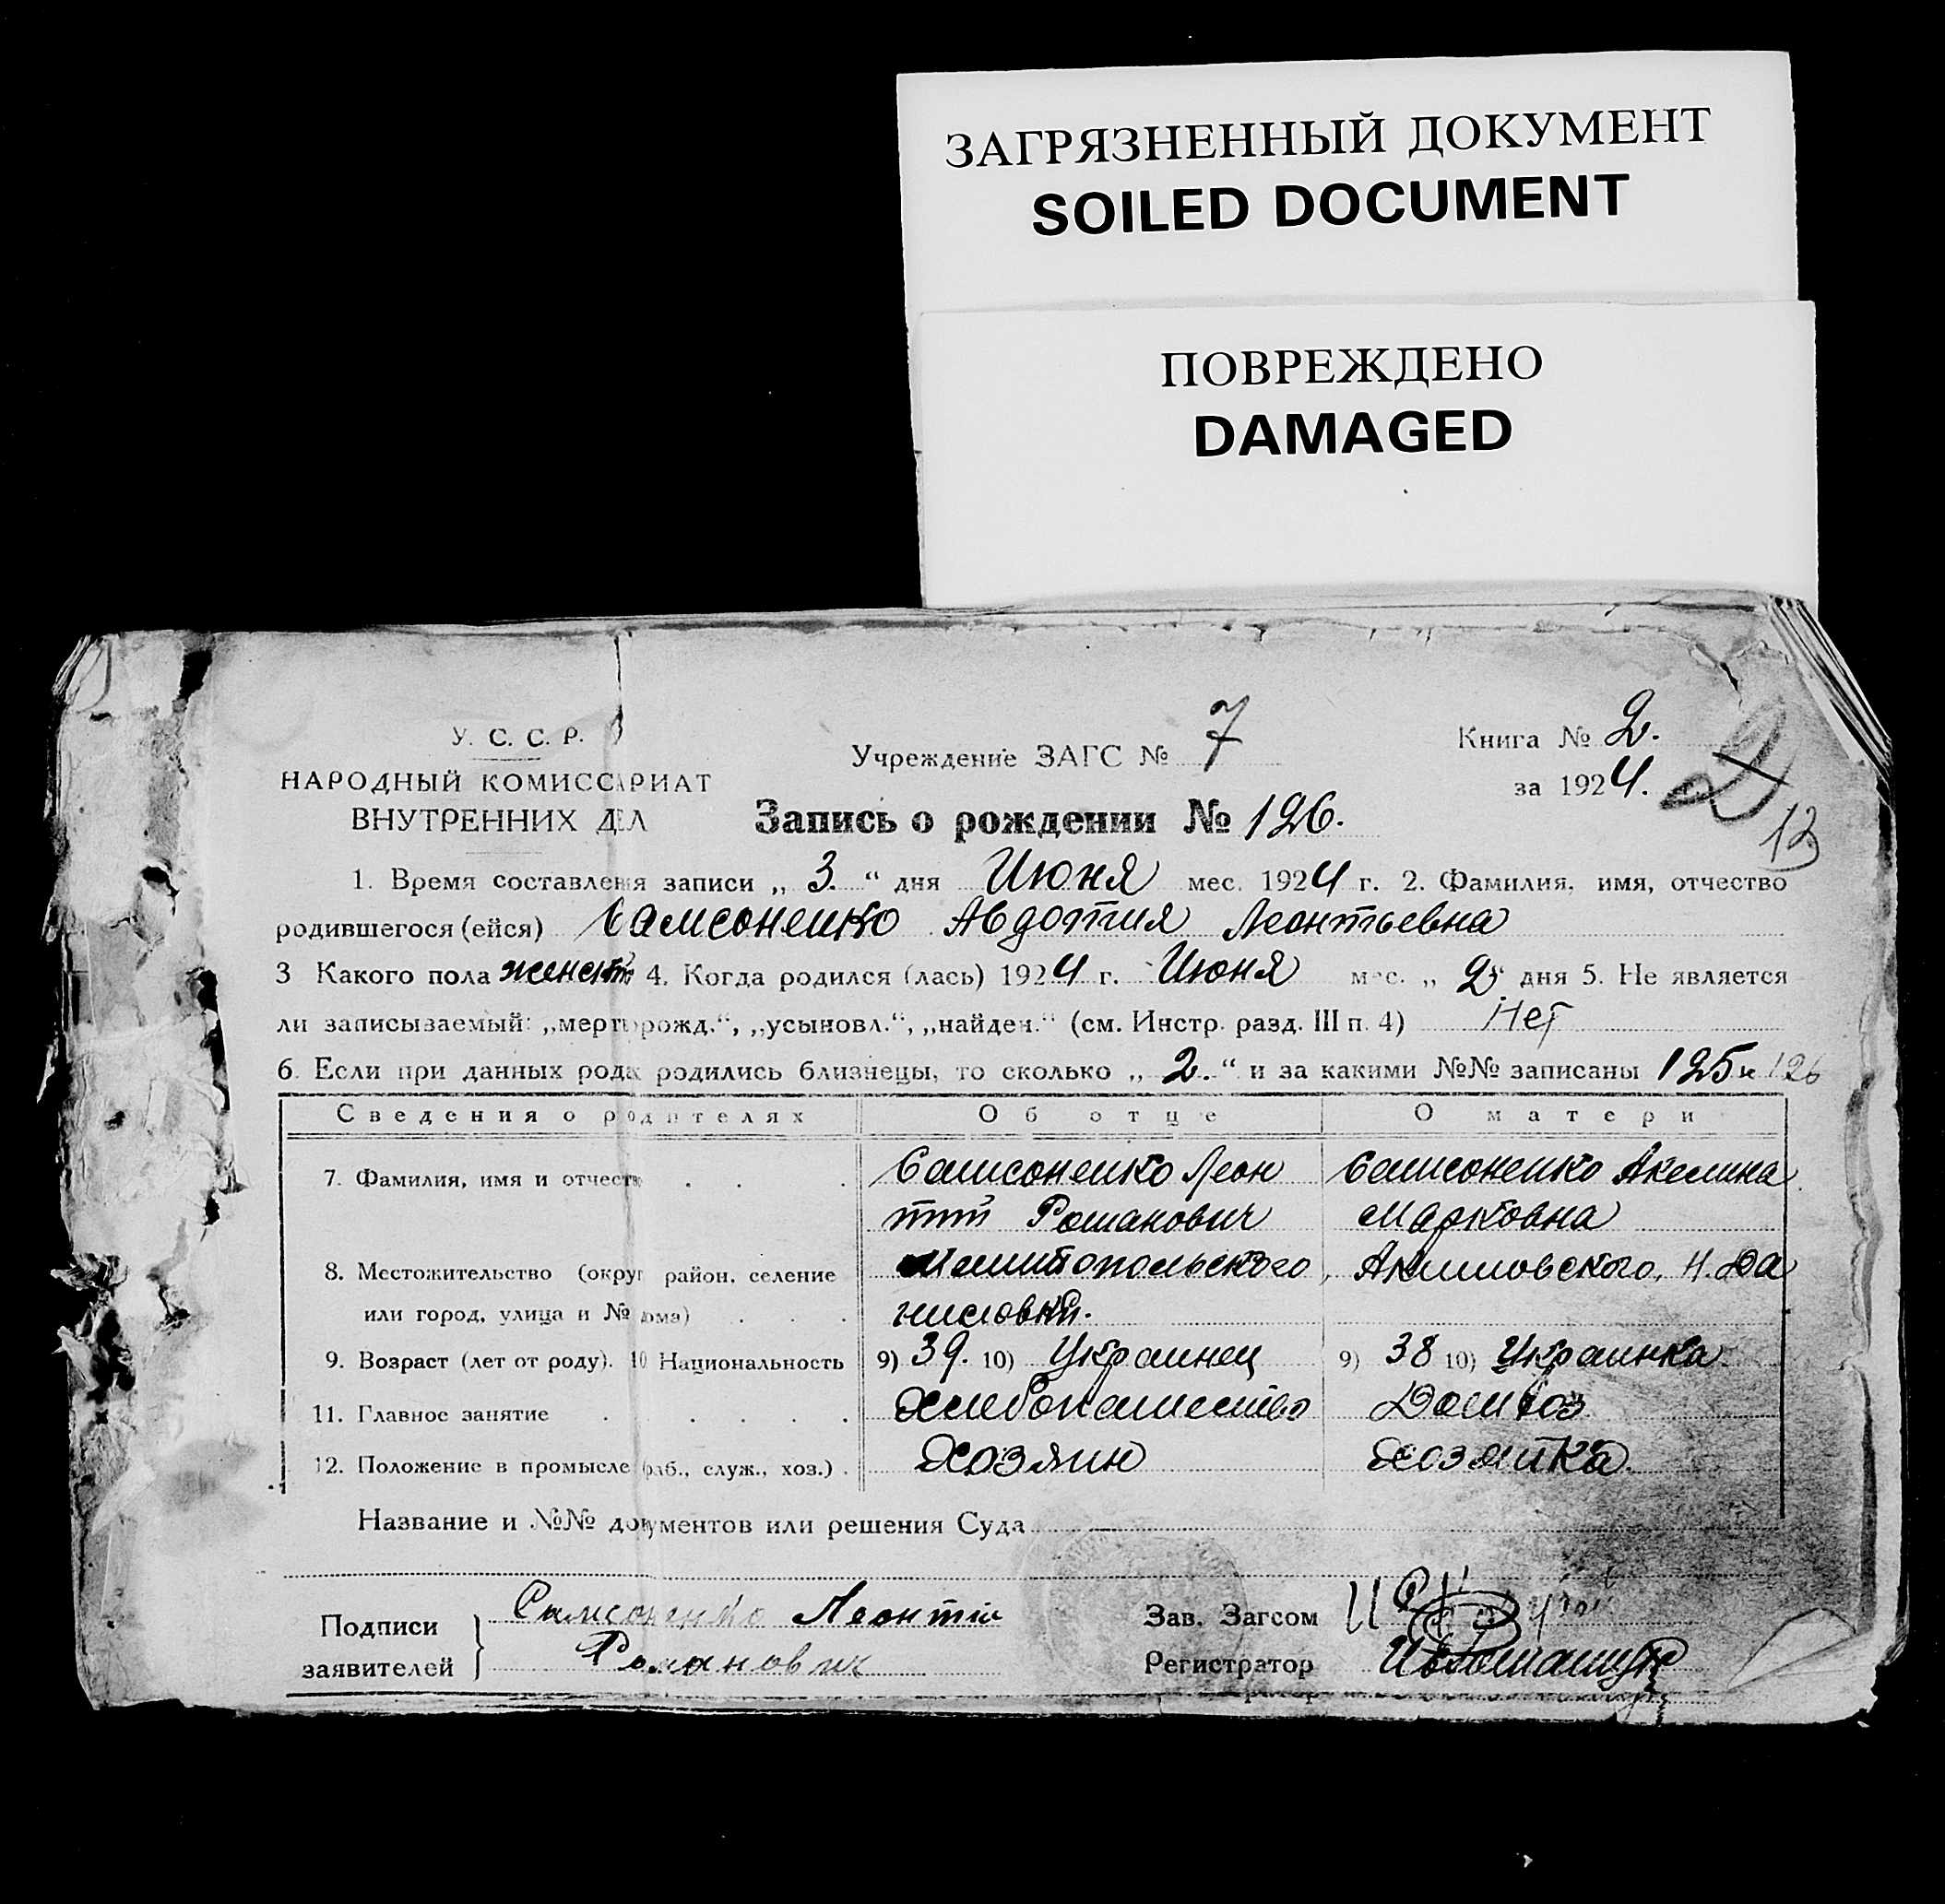 ЗАГРЯЗНЕННЫЙ ДОКУМЕНТ
SOILED DOCUMENT
ПОВРЕЖДЕНО
DAMAGED
У. С. С. Р.
НАРОДНЫЙ КОМИССАРИАТ
ВНУТРЕННИХ ДЕЛ
Учреждение ЗАГС № 7
Книга № 2.
за 1924.
2
13
Запись о рождении № 126.
1. Время составления записи „ 3. “ дня Июня мес. 1924 г. 2. Фамилия, имя, отчество
родившегося (ейся) Самсоненко Авдотия Леонтьевна
3 Какого пола 4. Когда родился (лась) 1924 г. Июня мес. „ 2 дня 5. Не является
ли записываемый: „мертворожд.“, „усыновл.“, „найден.“ (см. Инстр. разд. III п. 4) Нет
6. Если при данных родах родились близнецы, то сколько „ 2. “ и за какими №№ записаны 125 и 126
Сведения о родителях Об отце О матери
7. Фамилия, имя и отчество . . . Самсоненко Леон Самсоненко Акелина
тий Романович Марковна
8. Местожительство (округ, район, селение Мелитопольского, Акимовского, Н. Да
или город, улица и № дома) . . . ниловки.
9. Возраст (лет от роду). 10 Национальность 9) 39. 10) Украинец 9) 38 10) Украинка
11. Главное занятие . . . . . . Хлебопашество Домвоз
12. Положение в промысле (раб., служ., хоз.) . Хозяин хозяйка.
Название и №№ документов или решения Суда —
Подписи
заявителей
Самсоненко Леонтий
Романович
Зав. Загсом
Регистратор